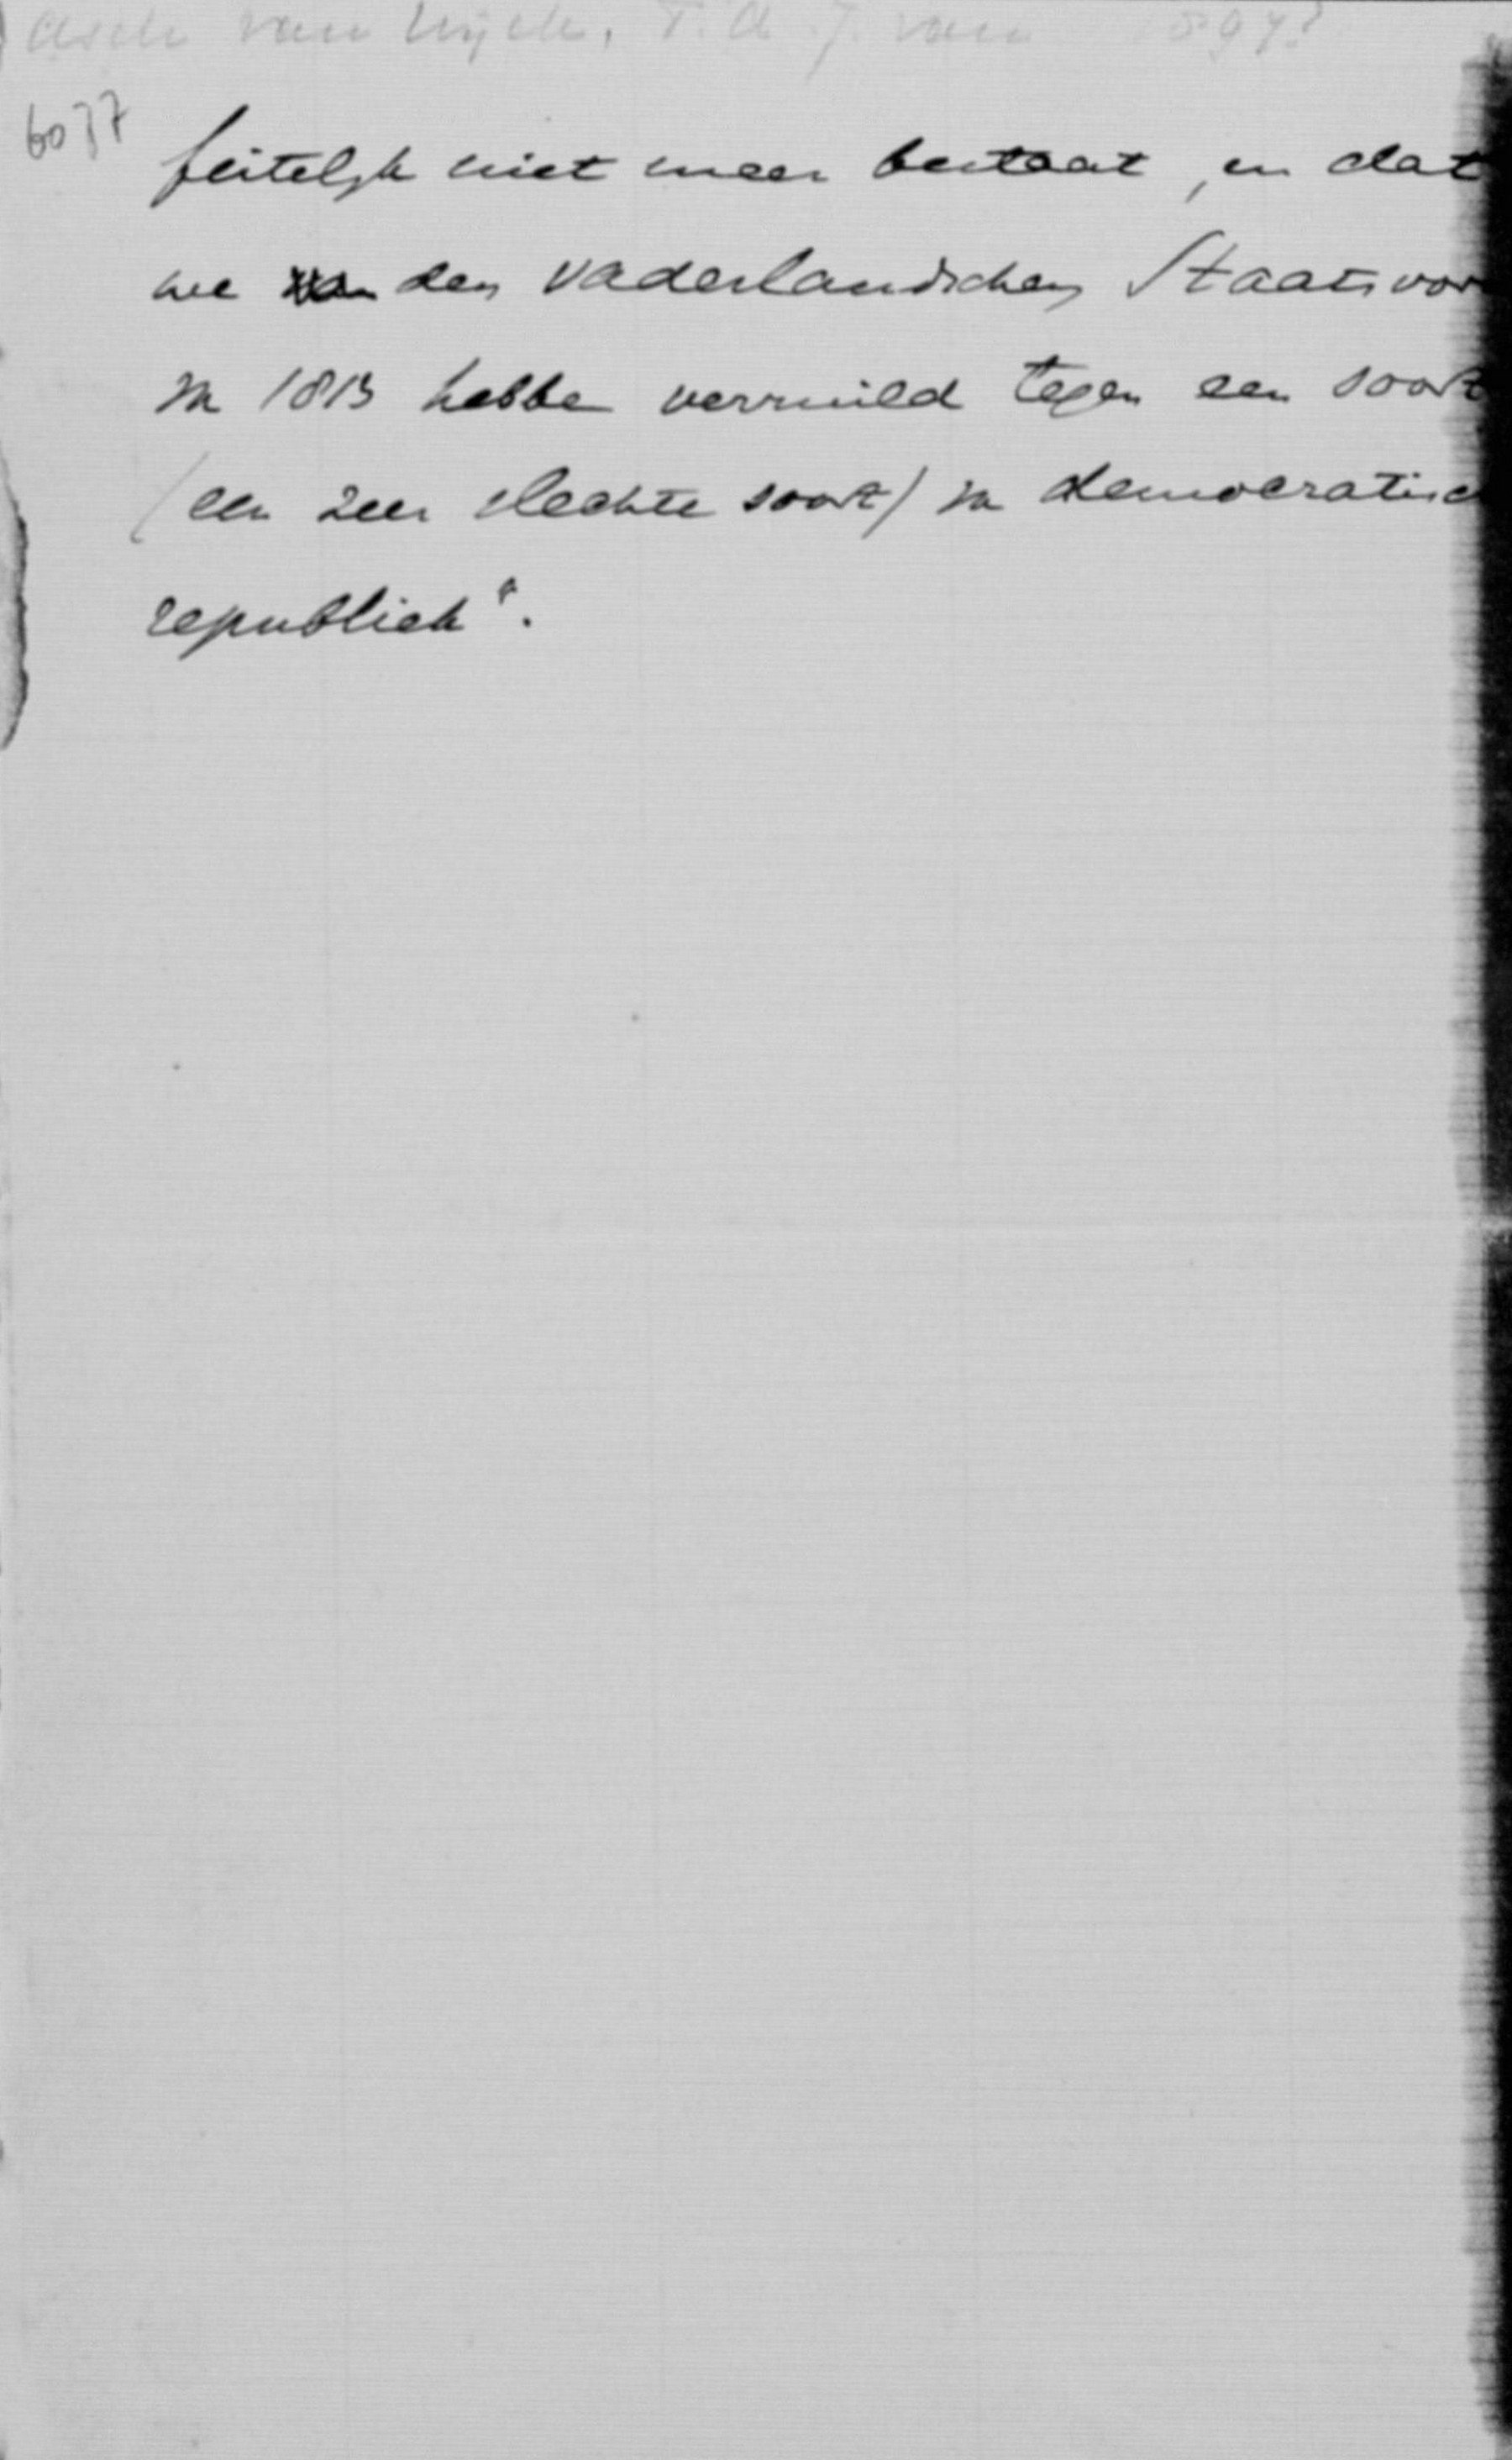 Asch van Wijck, T. A. J. van 1897?
6077
feitelijk niet meer bestaat, en dat
we den vaderlandschen Staatsvor
v 1813 hebbe verruild tegen een soort
(een zeer slechte soort) v democratisc
republiek".